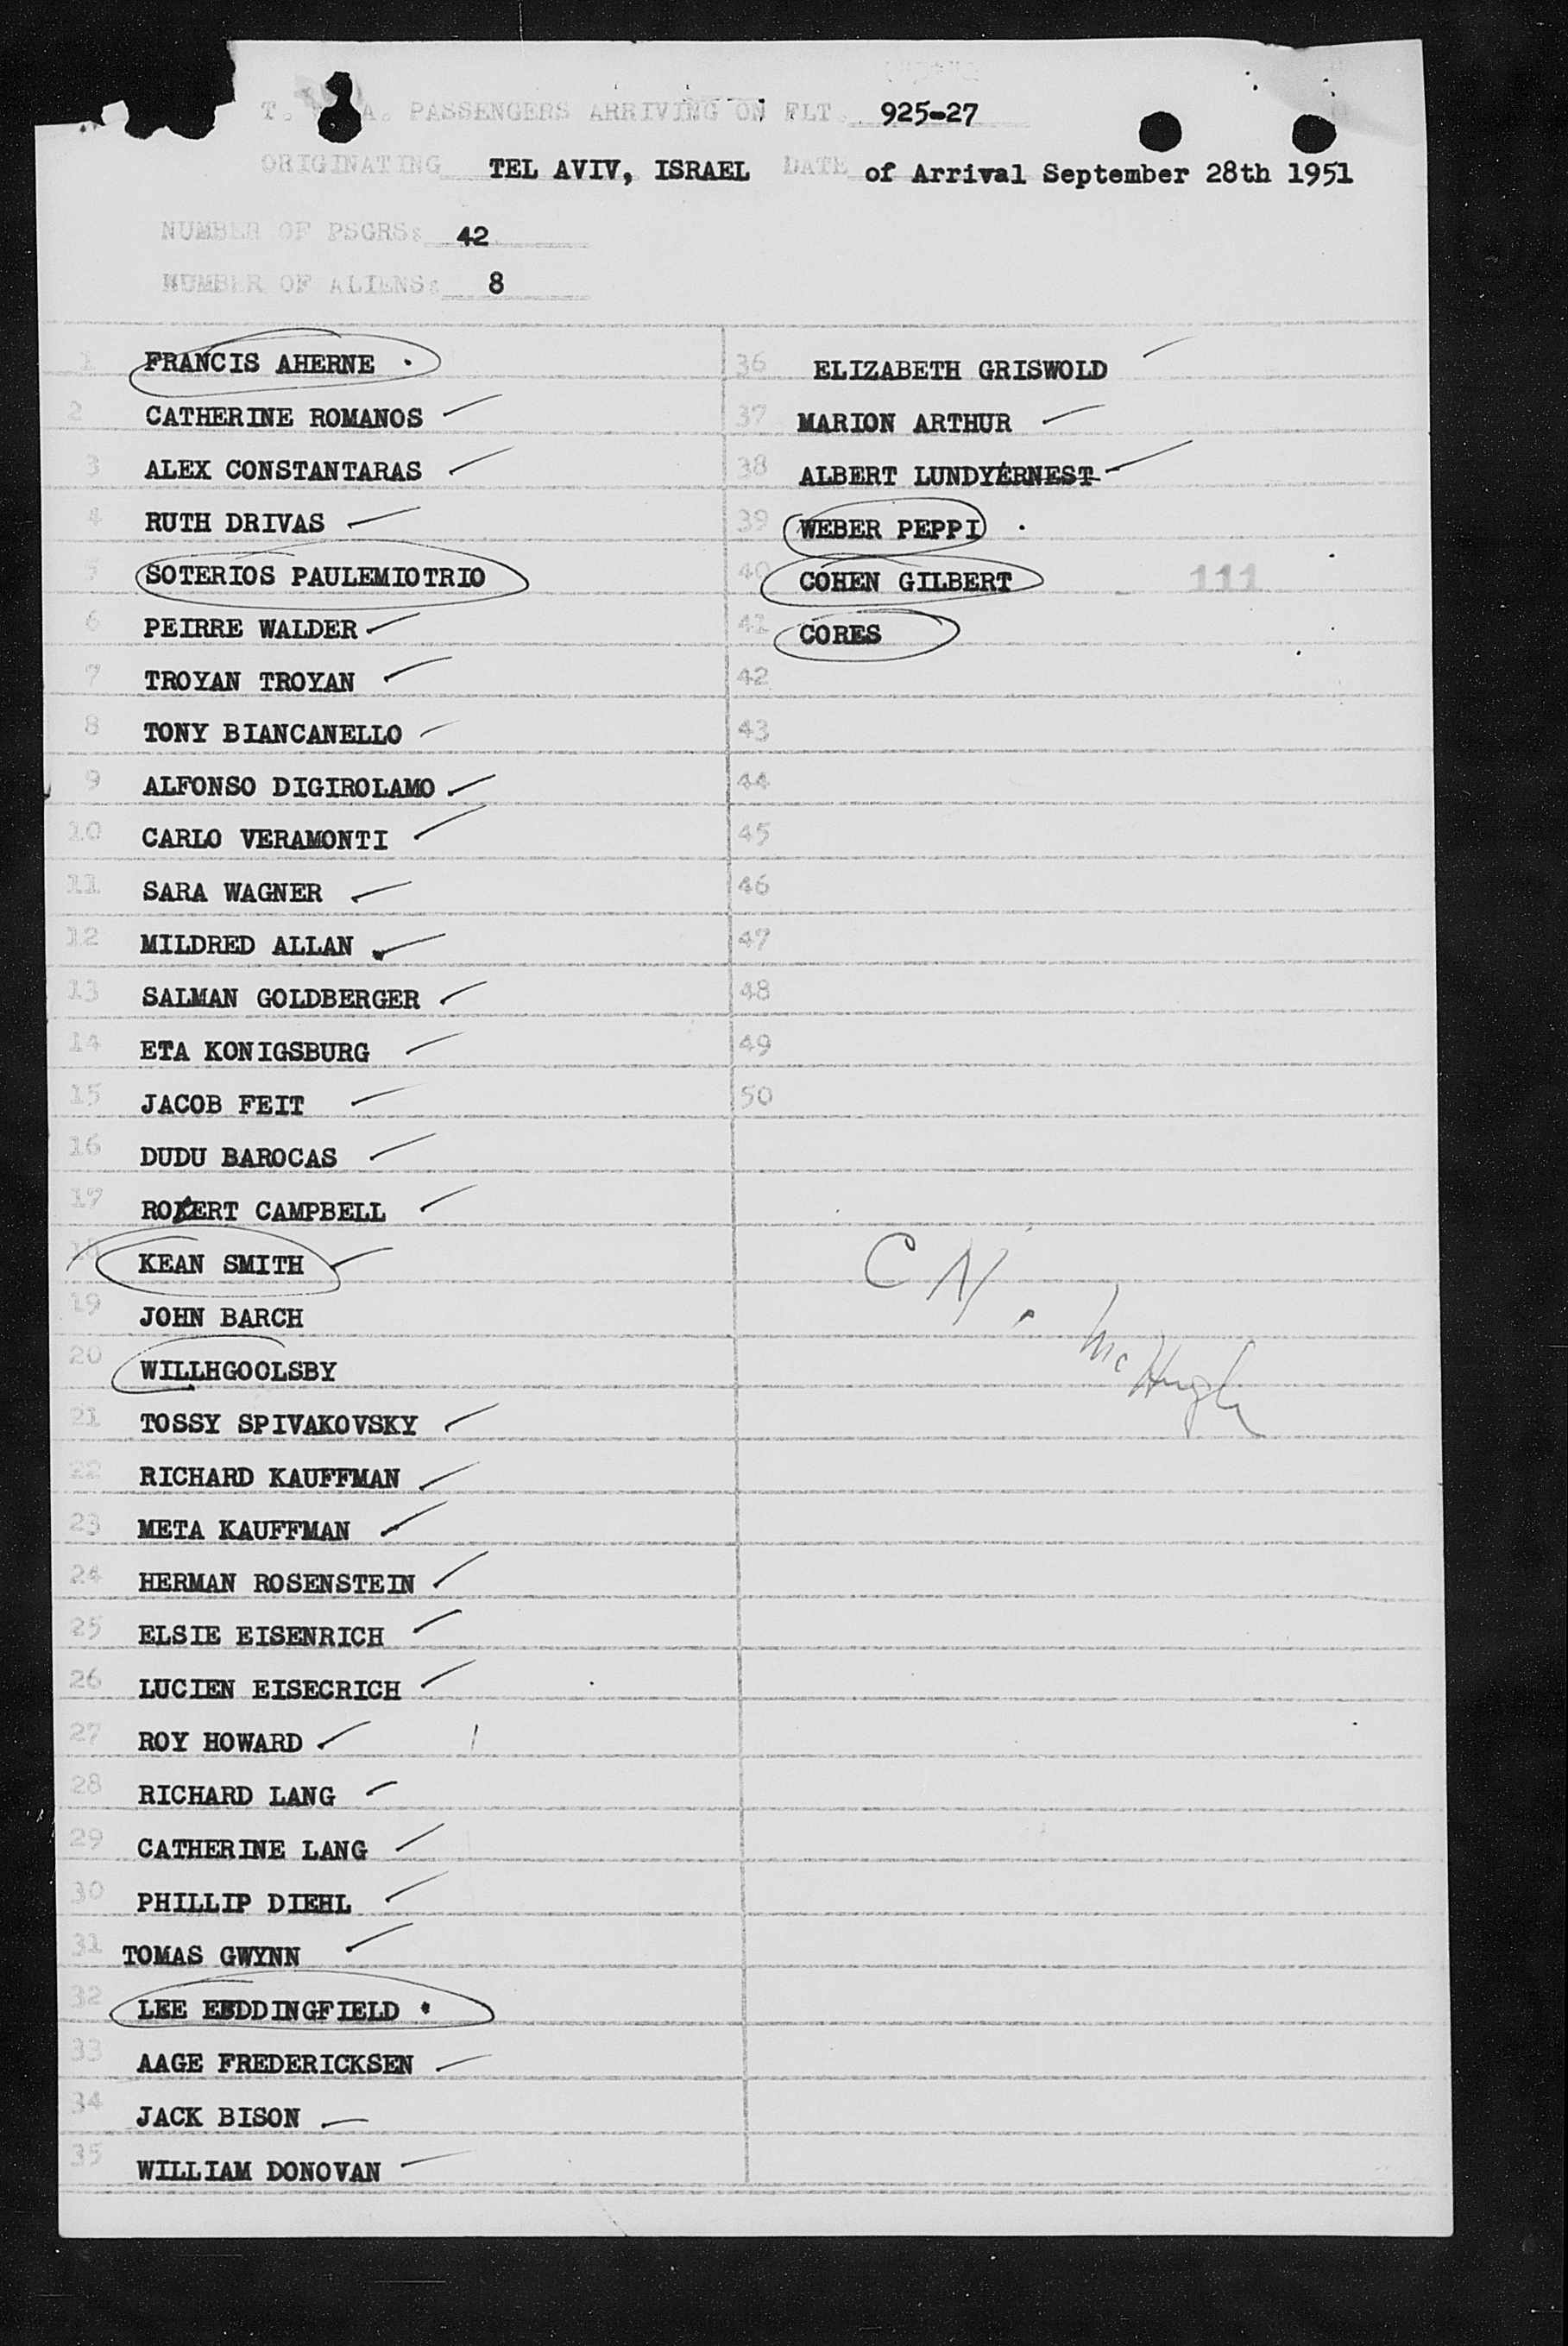 T. W. A. PASSENGERS ARRIVING ON FLT. 925-27
ORIGINATING TEL AVIV, ISRAEL DATE of Arrival September 28th 1951
NUMBER OF PSGRS: 42
NUMBER OF ALIENS: 8
1 FRANCIS AHERNE
2 CATHERINE ROMANOS
3 ALEX CONSTANTARAS
4 RUTH DRIVAS
5 SOTERIOS PAULEMIOTRIO
6 PEIRRE WALDER
7 TROYAN TROYAN
8 TONY BIANCANELLO
9 ALFONSO DIGIROLAMO
10 CARLO VERAMONTI
11 SARA WAGNER
12 MILDRED ALLAN
13 SALMAN GOLDBERGER
14 ETA KONIGSBURG
15 JACOB FEIT
16 DUDU BAROCAS
17 ROBERT CAMPBELL
18 KEAN SMITH
19 JOHN BARCH
20 WILLHGOOLSBY
21 TOSSY SPIVAKOVSKY
22 RICHARD KAUFFMAN
23 META KAUFFMAN
24 HERMAN ROSENSTEIN
25 ELSIE EISENRICH
26 LUCIEN EISECRICH
27 ROY HOWARD
28 RICHARD LANG
29 CATHERINE LANG
30 PHILLIP DIEHL
31 TOMAS GWYNN
32 LEE EDDINGFIELD
33 AAGE FREDERICKSEN
34 JACK BISON
35 WILLIAM DONOVAN
36 ELIZABETH GRISWOLD
37 MARION ARTHUR
38 ALBERT LUNDYERNEST
39 WEBER PEPPI
40 COHEN GILBERT 111
41 CORES
42
43
44
45
46
47
48
49
50
C N. McHugh